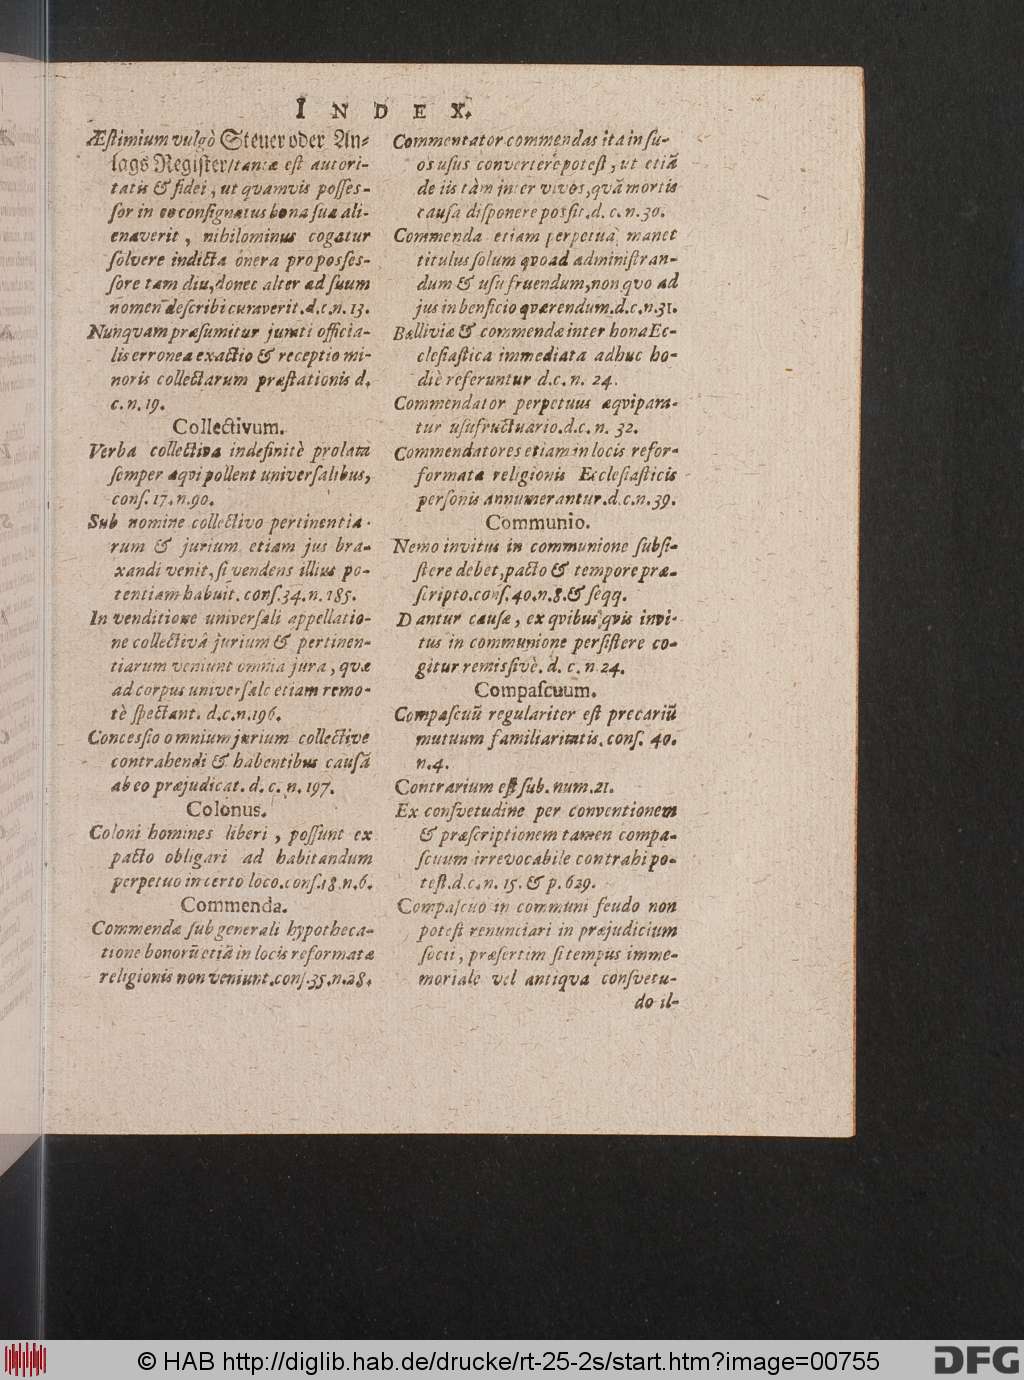 INDEX.
Æſtimium vulgò Steuer oder An-
lags Regiſter/tantæ eſt autori-
tatis & fidei, ut quamvis poſſeſ-
ſor in eo conſignatus bona ſua ali-
enaverit, nihilominus cogatur
ſolvere indicta onera pro poſſeſ-
ſore tam diu, donec alter ad ſuum
nomen deſcribi curaverit. d. c. n. 13.
Nunquam præſumitur jurati officia-
lis erronea exactio & receptio mi-
noris collectarum præſtationis d.
c. n. 19.
Collectivum.
Verba collectiva indefinitè prolata
ſemper æqvipollent univerſalibus,
conſ. 17. n. 90.
Sub nomine collectivo pertinentia-
rum & jurium etiam jus bra-
xandi venit, ſi vendens illius po-
tentiam habuit. conſ. 34. n. 185.
In venditione univerſali appellatio-
ne collectivâ jurium & pertinen-
tiarum veniunt omnia jura, quæ
ad corpus univerſale etiam remo-
tè ſpectant. d. c. n. 196.
Conceſſio omnium jurium collectivè
contrahendi & habentibus cauſã
ab eo præjudicat. d. c. n. 197.
Colonus.
Coloni homines liberi, poſſunt ex
pacto obligari ad habitandum
perpetuo in certo loco. conſ. 18. n. 6.
Commenda.
Commendæ ſub generali hypotheca-
tione bonorũ etiã in locis reformatæ
religionis non veniunt. conſ. 35. n. 28.
Commentator commendas ita in ſu-
os uſus convertere poteſt, ut etiã
de iis tàm inter vivos, quã mortis
cauſa diſponere poſſit. d. c. n. 30.
Commenda etiam perpetua manet
titulus ſolum qvoad adminiſtran-
dum & uſufruendum, non quo ad
jus in beneficio qværendum. d. c. n. 31.
Balliviæ & commendæ inter bona Ec-
cleſiaſtica immediata adhuc ho-
diè referuntur d. c. n. 24.
Commendator perpetuus æqvipara-
tur uſufructuario. d. c. n. 32.
Commendatores etiam in locis refor-
formatæ religionis Eccleſiaſticis
perſonis annumerantur. d. c. n. 39.
Communio.
Nemo invitus in communione ſubſi-
ſtere debet, pacto & tempore præ-
ſcripto. conſ. 40. n. 8. & ſeqq.
Dantur cauſæ, ex qvibus qvis invi-
tus in communione perſiſtere co-
gitur remiſſivè. d. c. n. 24.
Compaſcuum.
Compaſcuũ regulariter eſt precariũ
mutuum familiaritatis. conſ. 40.
n. 4.
Contrarium eſt ſub. num. 21.
Ex conſvetudine per conventionem
& præſcriptionem tamen compa-
ſcuum irrevocabile contrahi po-
teſt. d. c. n. 15. & p. 629.
Compaſcuo in communi feudo non
poteſt renunciari in præjudicium
ſocii, præſertim ſi tempus imme-
moriale vel antiqva conſvetu-
do il-
© HAB http://diglib.hab.de/drucke/rt-25-2s/start.htm?image=00755
DFG